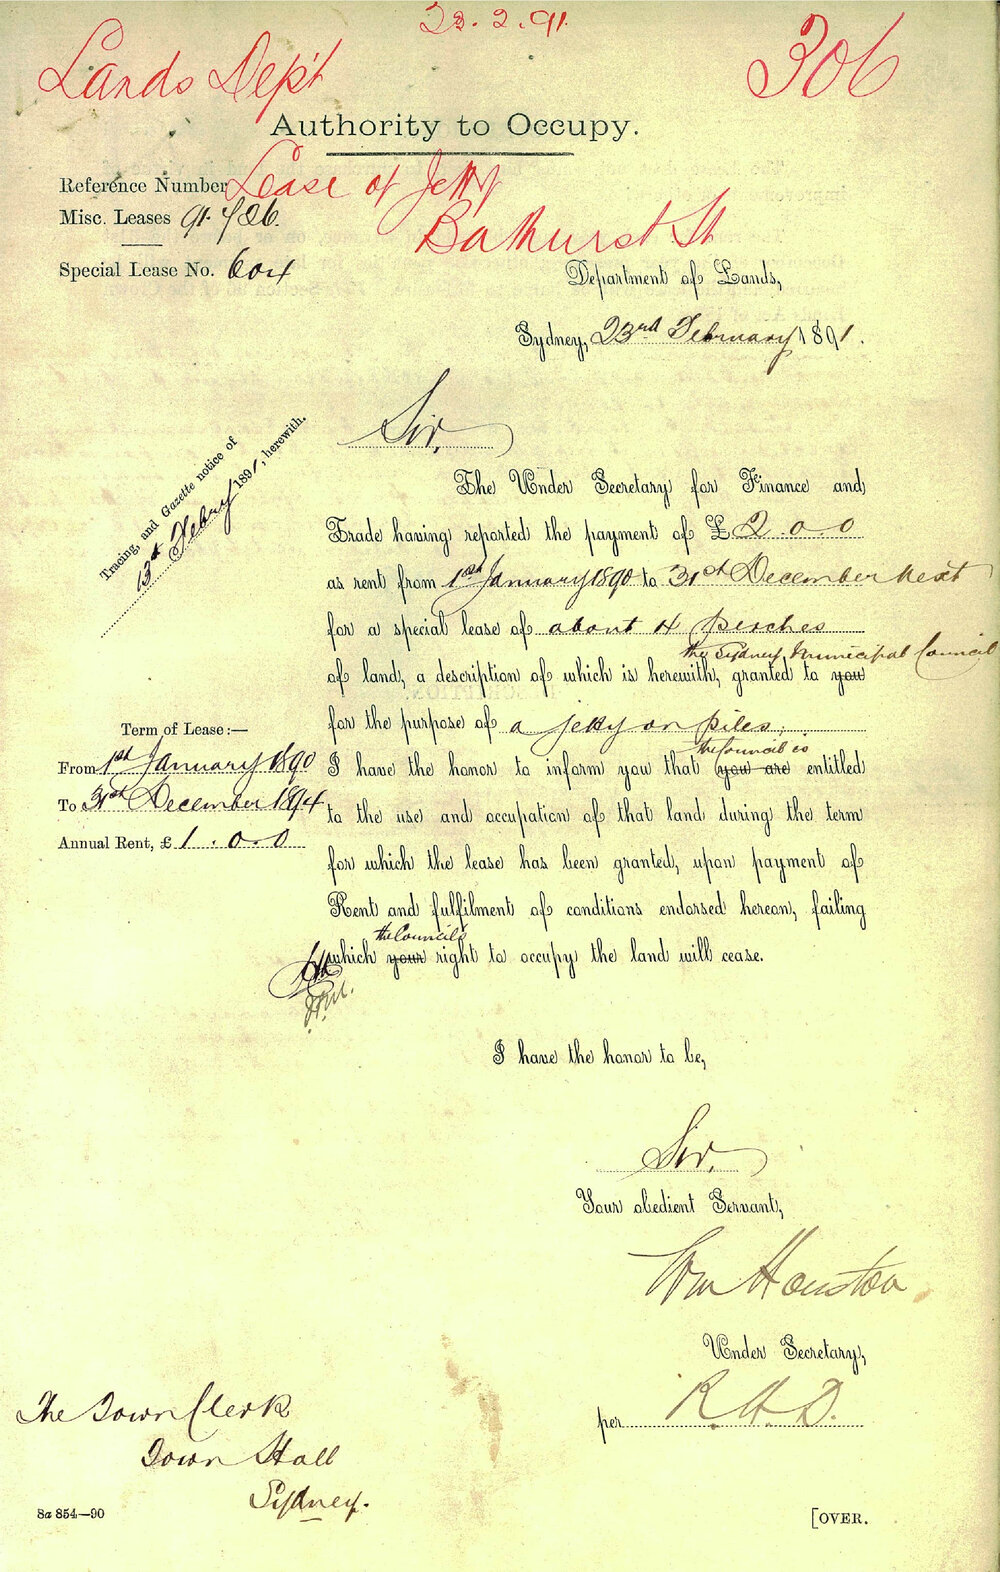 23.2.91.
Lands Dep't
306
Authority to Occupy.
Lease of Jetty
Bathurst St
Reference Number
Misc. Leases 91.726.
Special Lease No. 604
Department of Lands,
Sydney, 23rd February 1891.
Tracing, and Gazette notice of
13th Febry 1891, herewith.
Sir,
The Under Secretary for Finance and
Trade having reported the payment of £ 2.0.0
as rent from 1st January 1890 to 31st December next
for a special lease of about 4 perches
the Sydney Municipal Council
of land, a description of which is herewith, granted to you
for the purpose of a jetty on piles;
the Council is
I have the honor to inform you that (you are) entitled
to the use and occupation of that land during the term
for which the lease has been granted, upon payment of
Rent and fulfilment of conditions endorsed hereon, failing
the Council's
which your right to occupy the land will cease.
Term of Lease:—
From 1st January 1890
To 31st December 1894
Annual Rent, £ 1.0.0
I have the honor to be,
Sir,
Your obedient Servant,
Wm Houston
Under Secretary,
per R.H.D.
The Town Clerk
Town Hall
Sydney.
8a 854—90
[OVER.